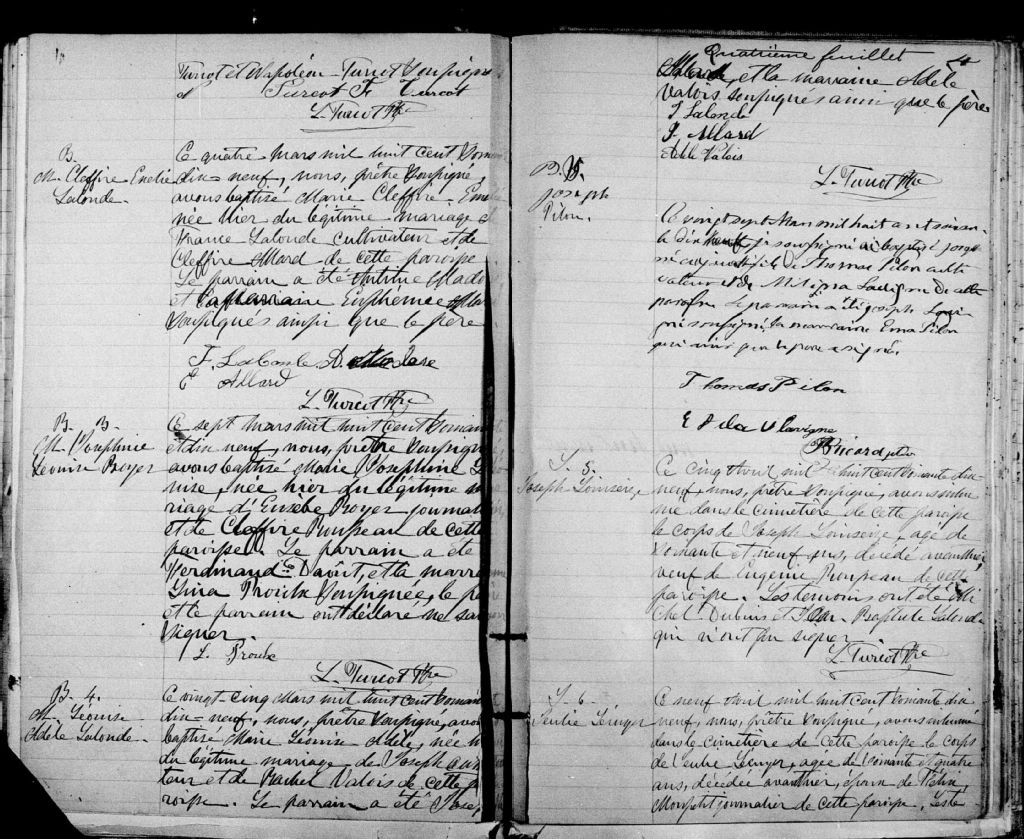 Turcot et Napoléon Turcot soussignés
Turcot F. Turcot
L. Turcot Ptre
B.
M. Cleffire Emelie
Lalonde.
Ce quatre Mars mil huit cent soixan
dix-neuf, nous, prêtre soussigné,
avons baptisé Marie Cleffire Emelie
née hier du légitime mariage de
France Lalonde cultivateur et de
Cleffire Allard de cette paroisse
Le parrain a été Antime
et la marraine Euphémie
soussignés ainsi que le père
F. Lalonde
E Allard
L. Turcot Ptre
B. 3.
M. Josephine
Léonise Royer
Ce sept Mars mil huit cent soixante
et dix neuf, nous, prêtre soussigné
avons baptisé Marie Josephine Léo
nise, née hier du légitime ma
riage d'Eusèbe Royer journalier
et de Cleffire Rouseau de cette
paroisse. Le parrain a été
Ferdinand Daoût, et la marraine
Lina Proulx soussignée, le père
et le parrain ont déclaré ne savoir
signer.
L. Proulx
L. Turcot Ptre
B. 4.
M. Léonise
Adèle Lalonde.
Ce vingt-cinq Mars mil huit cent soixante
dix-neuf, nous, prêtre soussigné, avons
baptisé Marie Léonise Adèle, née
du légitime mariage de Joseph cultiva
teur et de Rachel Valois de cette pa
roisse. Le parrain a été Joseph
Quatrième feuillet
4
Allard, et la marraine Adèle
Valois soussignés ainsi que le père
J Lalonde
J. Allard
Adèle Valois
L. Turcot Ptre
B. 5.
Joseph
Pilon.
Ce vingt sept Mars mil huit cent soixan
te dix neuf je soussigné ai baptisé Joseph
né fils de Thomas Pilon culti
vateur et de Lavigne de cette
paroisse Le parrain a été Joseph
soussigné la marraine Pilon
ainsi que le père a signé.
Thomas Pilon
Lavigne
Ricard ptre
S. 5.
Joseph
Ce cinq Avril mil huit cent soixante dix
neuf, nous, prêtre soussigné, avons inhu
mé dans le cimetière de cette paroisse
le corps de Joseph agé de
soixante et neuf ans, décédé avanthier,
veuf de Eugénie Rouseau de cette
paroisse. Les témoins ont été Mi
chel Dubuis et Jean Baptiste Lalonde
qui n'ont pu signer.
L. Turcot Ptre
S. 6
Julie Léger
Ce neuf Avril mil huit cent soixante dix
neuf, nous, prêtre soussigné, avons inhumé
dans le cimetière de cette paroisse le corps
de Julie Léger, agée de soixante et quatre
ans, décédée avanthier, épouse de
Monpetit journalier de cette paroisse. Les té